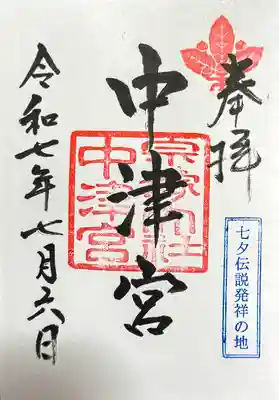 奉拝
七夕伝説発祥の地
中津宮
宗像大社
中津宮
令和七年七月六日